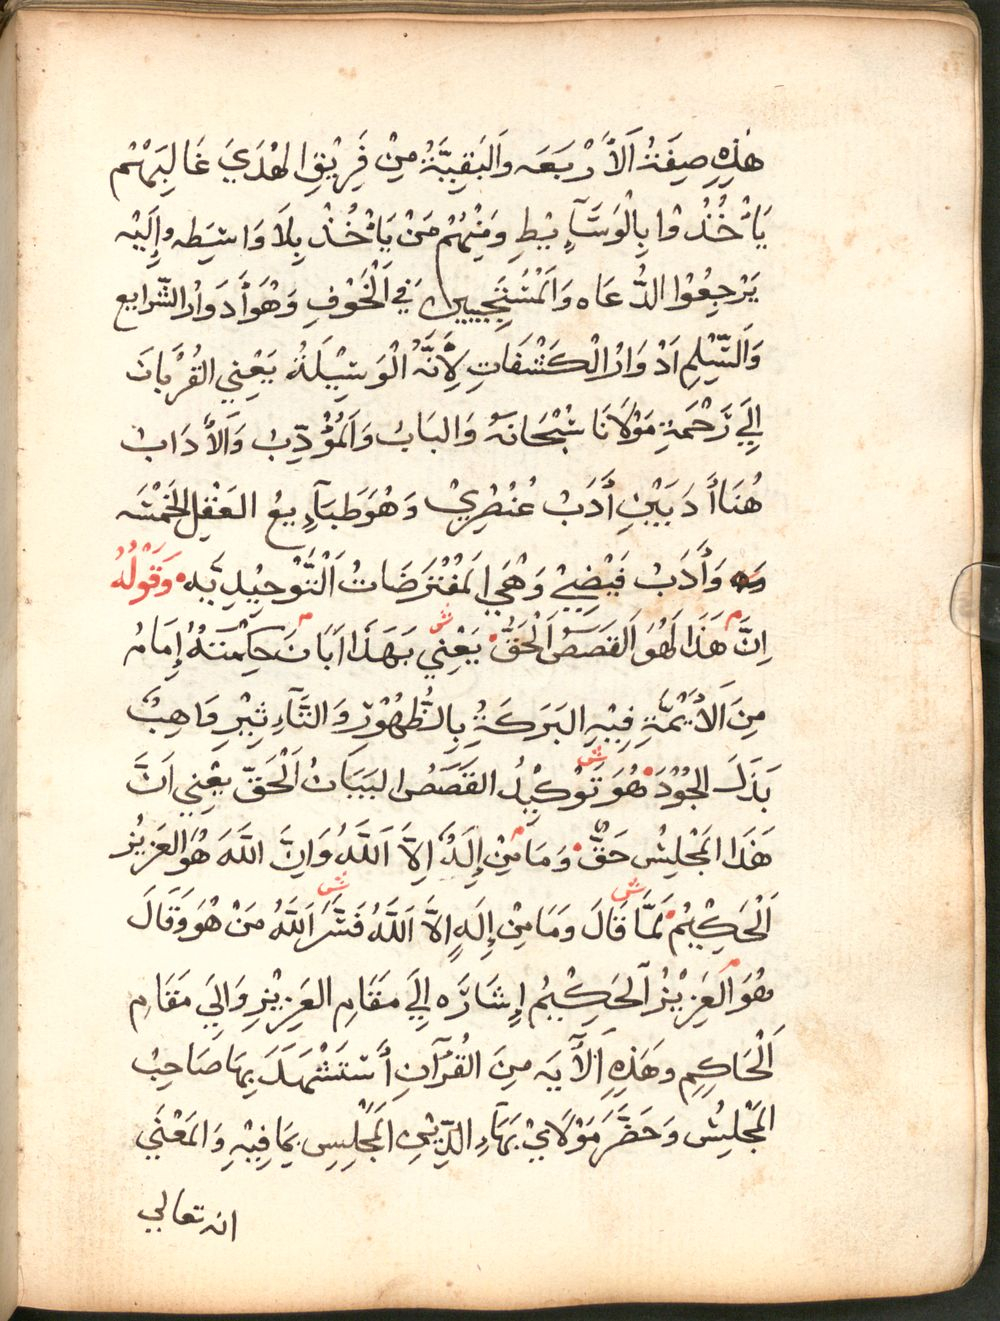 هَذِهِ صِفَةُ اَلأَرْبَعَه وَالبَقِيَّةُ مِنْ فَرِيْقِ الهُدَيَ غَالِبَهُمْ
يَأْخُذُوا بِالْوَسَآيِطِ وَمِنْهُمْ مَنْ يَأْخُذْ بِلاَ وَاسِطَه وإِلَيْه
يَرْجِعُوا الدُّعَاه وَالمُسْتَجِيبِينَ فِي اَلْخَوْفِ وَهُوَ أَدوَارُ الشَّرايع
وَالسِّلْمِ اَدْوَارُ الْكَشْفَاتِ لأَنَّهُ الْوَسِيْلَةُ يَعْنِي القُرْبَانَ
إِلَي رَحْمَةِ مَوْلاَنَا سُبْحَانَهُ وَالبَابُ وَالمُؤَدِّبُ وَالأَدَابُ
هُنَا أَدَبَيْنِ أَدَبْ عُنْصُرِيْ وَهُوَ طَبَآيِعُ العَقْلِ الخَمْسَه
وَأَدَبْ فَيْضِيْ وَهْيَ المُفْتَرَضَاتُ اَلتَّوْحِيْدِيَّه وَقَوْلُهُ
اِنَّ هَذَا لَهُوَ القَصَصُ اَلْحَقُّ ش يَعْنِي بَهَذَا اَبَانَ حِكْمَتَهُ إِمَامُ
مِنَ اَلأَيِمَّةِ فِيْهِ البَرَكَةُ بِالظُّهُوْرِ وَالتَّآءثِيْرِ وَاهِبْ
بَذَلَ الجُوْدَ هُوَ ش تَوْكِيْدُ القَصَصُ البَيَانُ اَلْحَقّ يَعْنِي اَنَّ
هَذَا المَجْلِسُ حَقٌّ م وَمَا مِنْ إِلَهٍ اِلاَّ اَللَّهُ وَاِنَّ اللَّهَ هُوَ العَزِيْزُ
اَلْحَكِيْمُ ش لَمَّا قَالَ وَمَا مِنْ إِلَهٍ اِلاَّ اَللَّهُ ش فَسَّرَ اَللَّهُ مَنْ هُوَ وَقَالَ
هُوَ اَلعَزِيْزُ اَلحَكِيْمُ إِشَارَه إِلَي مَقَامِ العَزِيْزِ وَاِلَي مَقَامِ
اَلْحَاكِمِ وهَذِهِ اَلأَيَه مِنَ القُرْآنِ أَسْتَشْهَدَ بِهَا صَاحِبْ
المَجْلِسْ وَحَضَّرَ مَوْلاَيْ بَهَآءِ الدِّيْنِ اَلمَجْلِسِ بِمَا فِيْهِ وَالمَعْنَي
انه تعالي